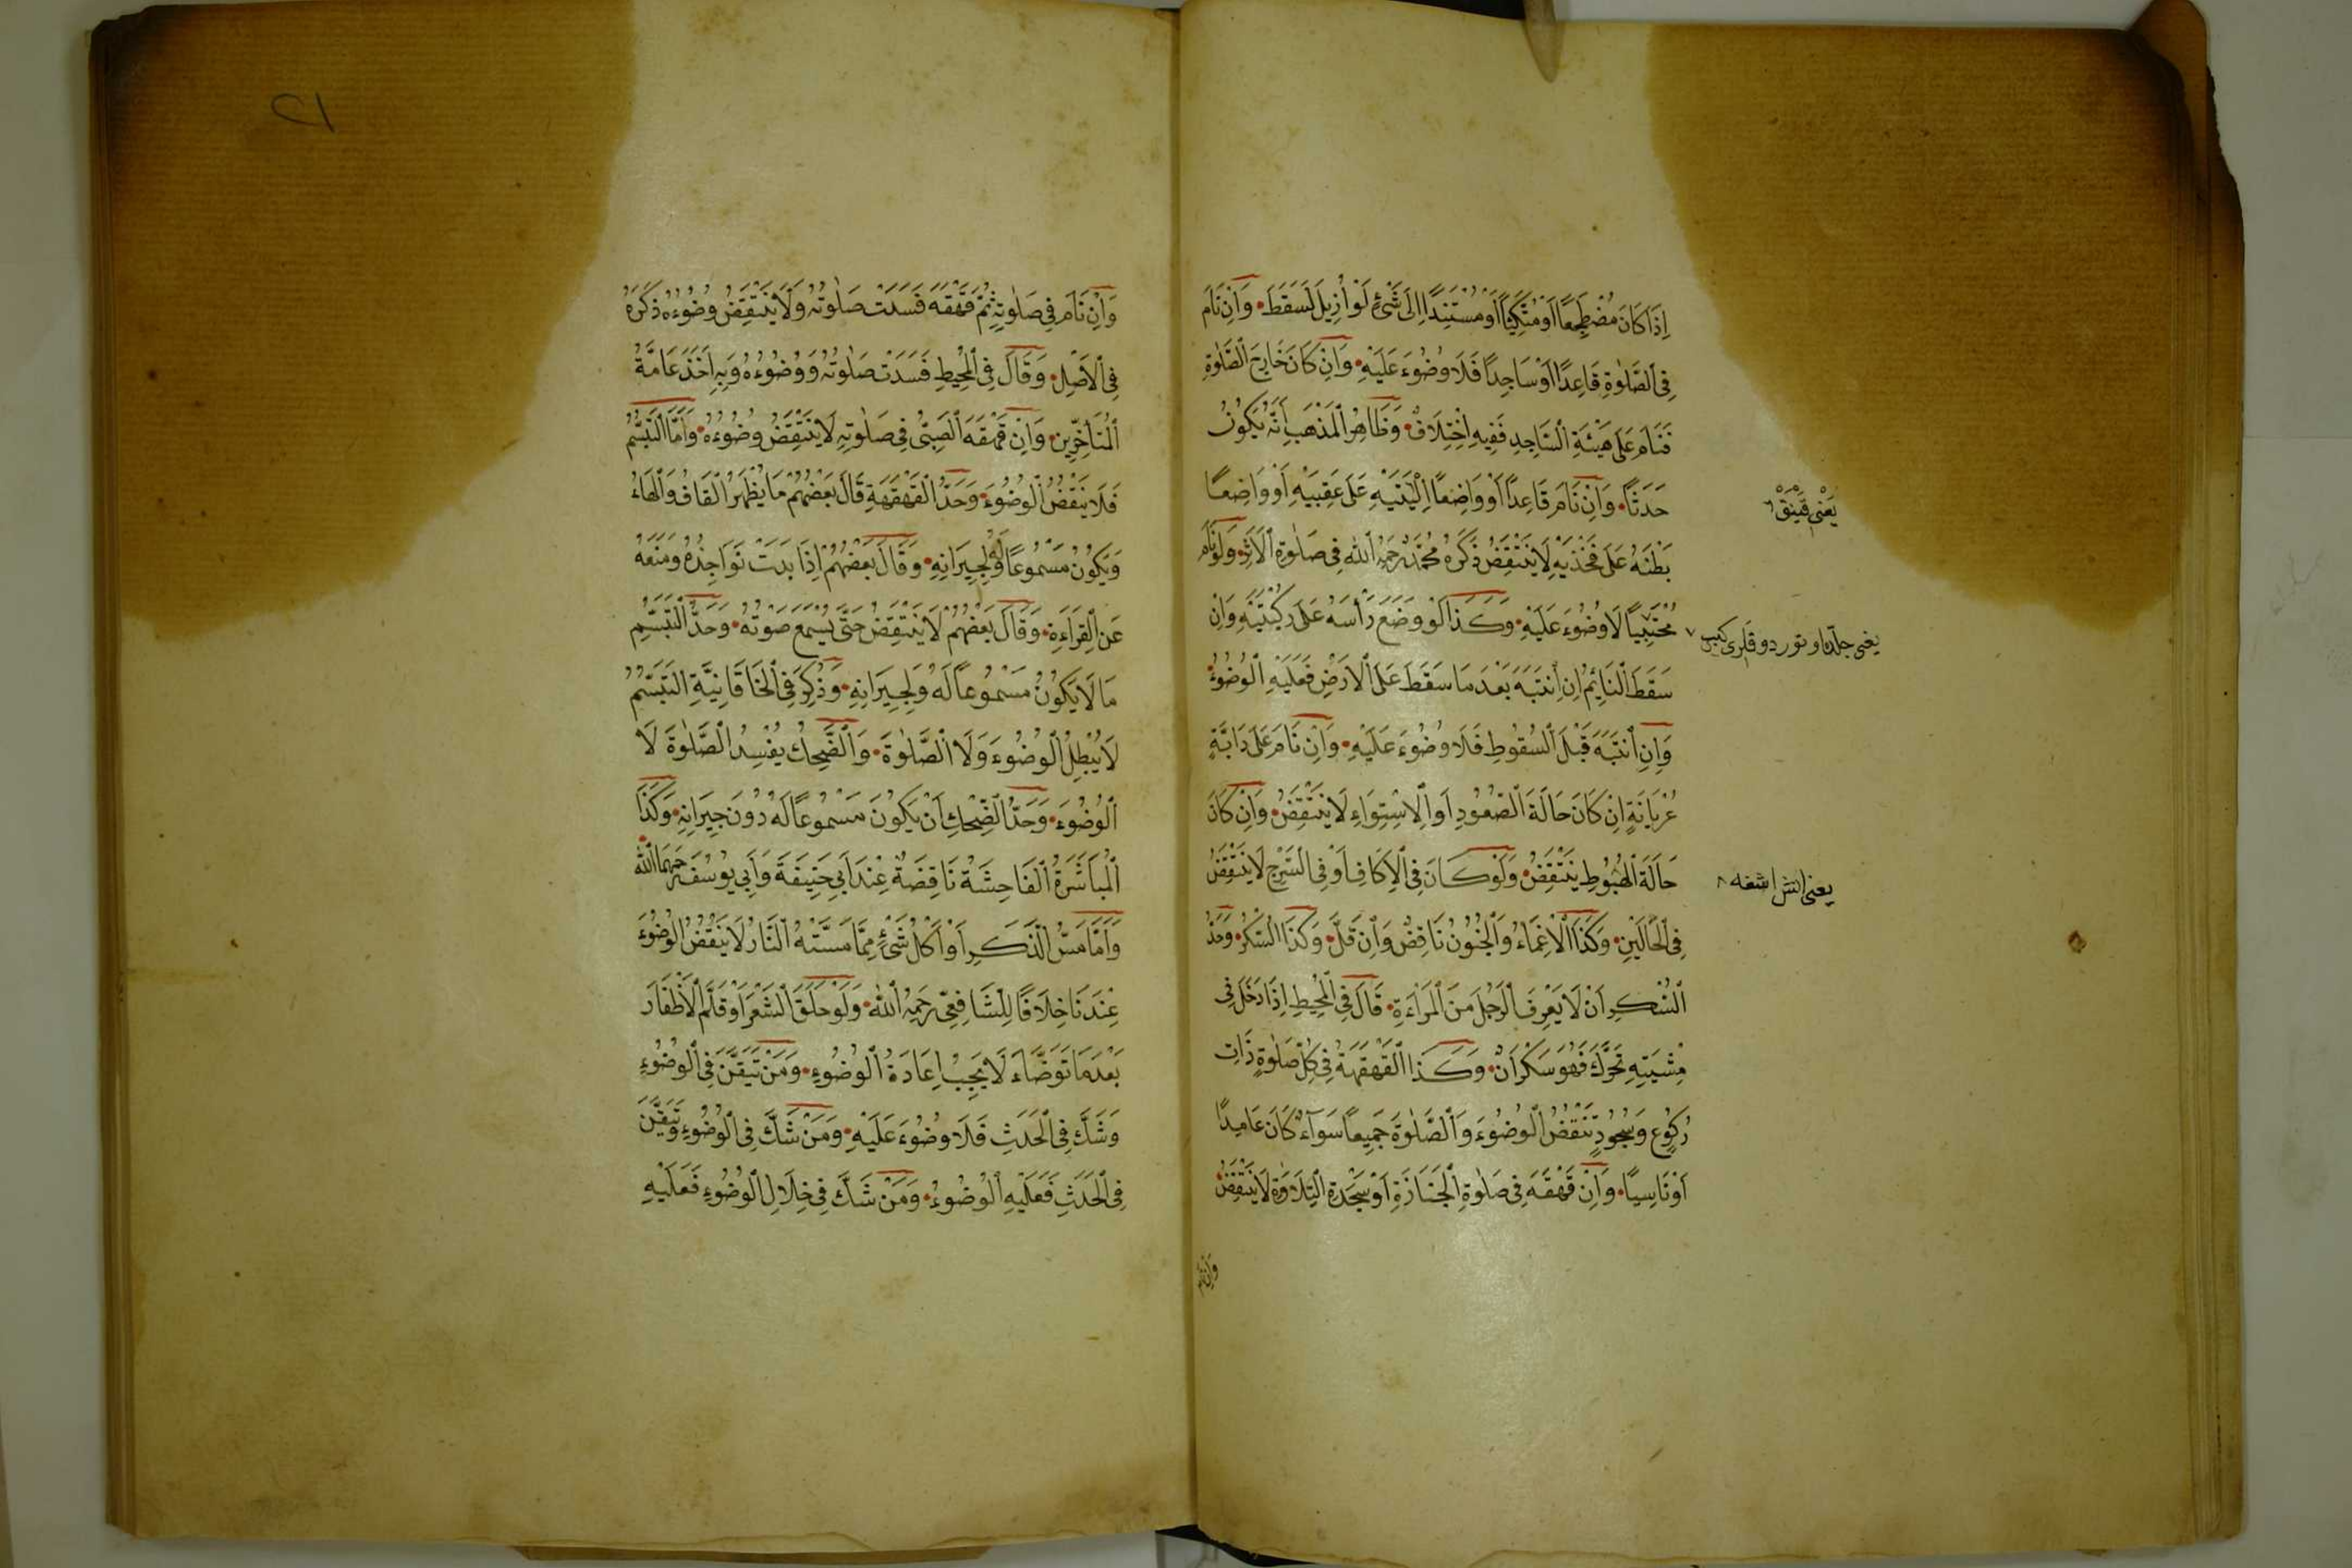 اِذَا كَانَ مُضْطَجِعًا اَوْ مُتَّكِئًا اَوْ مُسْتَنِدًا اِلَى شَىْءٍ لَوْ اُزِيلَ لَسَقَطَ وَاِنْ نَامَ
فِى الصَّلٰوةِ قَاعِدًا اَوْ سَاجِدًا فَلَا وُضُوءَ عَلَيْهِ وَاِنْ كَانَ خَارِجَ الصَّلٰوةِ
فَنَامَ عَلَى هَيْئَةِ السَّاجِدِ فَفِيهِ اِخْتِلَافٌ وَظَاهِرُ الْمَذْهَبِ اَنَّهُ يَكُونُ
حَدَثًا وَاِنْ نَامَ قَاعِدًا اَوْ وَاضِعًا اِلْيَتَيْهِ عَلَى عَقِبَيْهِ اَوْ وَاضِعًا
بَطْنَهُ عَلَى فَخْذَيْهِ لَا يَنْتَقِضُ ذَكَرَهُ مُحَمَّدٌ رَحِمَهُ اللّٰه فِى صَلٰوةِ الْاَثَرِ وَلَوْ نَامَ
مُحْتَبِيًا لَا وُضُوءَ عَلَيْهِ وَكَذَا لَوْ وَضَعَ رَأْسَهُ عَلَى رُكْبَتَيْهِ وَاِنْ
سَقَطَ النَّائِمُ اِنِ انْتَبَهَ بَعْدَ مَا سَقَطَ عَلَى الْاَرْضِ فَعَلَيْهِ الْوُضُوءُ
وَاِنِ انْتَبَهَ قَبْلَ السُّقُوطِ فَلَا وُضُوءَ عَلَيْهِ وَاِنْ نَامَ عَلَى دَابَّةٍ
عُرْيَانَةٍ اِنْ كَانَ حَالَةَ الصُّعُودِ اَوِ الْاِسْتِوَاءِ لَا يَنْتَقِضُ وَاِنْ كَانَ
حَالَةَ الْهُبُوطِ يَنْتَقِضُ وَلَوْ كَانَ فِى الْاِكَافِ اَوْ فِى السَّرْجِ لَا يَنْتَقِضُ
فِى الْحَالَيْنِ وَكَذَا الْاِغْمَاءُ وَالْجُنُونُ نَاقِضٌ وَاِنْ قَلَّ وَكَذَا السُّكْرُ وَحَدُّ
السُّكْرِ اَنْ لَا يَعْرِفَ الرَّجُلَ مِنَ الْمَرْاَةِ قَالَ فِى الْمُحِيطِ اِذَا دَخَلَ فِى
مِشْيَتِهِ تَحَرُّكٌ فَهُوَ سَكْرَانٌ وَكَذَا الْقَهْقَهَةُ فِى كُلِّ صَلٰوةٍ ذَاتِ
رُكُوعٍ وَسُجُودٍ تَنْقُضُ الْوُضُوءَ وَالصَّلٰوةَ جَمِيعًا سَوَآءٌ كَانَ عَامِدًا
اَوْ نَاسِيًا وَاِنْ قَهْقَهَ فِى صَلٰوةِ الْجَنَازَةِ اَوْ سَجْدَةِ التِّلَاوَةِ لَا يَنْتَقِضُ
وَاِنْ نَامَ
يَعْنِى
يعنى
يعنى
٢١
وَاِنْ نَامَ فِى صَلٰوتِهِ ثُمَّ قَهْقَهَ فَسَدَتْ صَلٰوتُهُ وَلَا يَنْتَقِضُ وُضُوءُهُ ذَكَرَهُ
فِى الْاَصْلِ وَقَالَ فِى الْمُحِيطِ فَسَدَتْ صَلٰوتُهُ وَوُضُوءُهُ وَبِهِ اَخَذَ عَامَّةُ
الْمُتَأَخِّرِينَ وَاِنْ قَهْقَهَ الصَّبِىُّ فِى صَلٰوتِهِ لَا يَنْتَقِضُ وُضُوءُهُ وَاَمَّا التَّبَسُّمُ
فَلَا يَنْقُضُ الْوُضُوءَ وَحَدُّ الْقَهْقَهَةِ قَالَ بَعْضُهُمْ مَا يَظْهَرُ الْقَافُ وَالْهَاءُ
وَيَكُونُ مَسْمُوعًا لَهُ وَلِجِيرَانِهِ وَقَالَ بَعْضُهُمْ اِذَا بَدَتْ نَوَاجِذُهُ وَمَنَعَهُ
عَنِ الْقِرَاءَةِ وَقَالَ بَعْضُهُمْ لَا يَنْتَقِضُ حَتَّى يُسْمَعَ صَوْتُهُ وَحَدُّ التَّبَسُّمِ
مَا لَا يَكُونُ مَسْمُوعًا لَهُ وَلِجِيرَانِهِ وَذُكِرَ فِى الْخَاقَانِيَّةِ التَّبَسُّمُ
لَا يُبْطِلُ الْوُضُوءَ وَلَا الصَّلٰوةَ وَالضَّحِكُ يُفْسِدُ الصَّلٰوةَ لَا
الْوُضُوءَ وَحَدُّ الضِّحْكِ اَنْ يَكُونَ مَسْمُوعًا لَهُ دُونَ جِيرَانِهِ وَكَذَا
الْمُبَاشَرَةُ الْفَاحِشَةُ نَاقِضَةٌ عِنْدَ اَبِى حَنِيفَةَ وَاَبِى يُوسُفَ رَحِمَهُمَا اللّٰه
وَاَمَّا مَسُّ الذَّكَرِ اَوْ اَكْلُ شَىْءٍ مِمَّا مَسَّتْهُ النَّارُ لَا يَنْقُضُ الْوُضُوءَ
عِنْدَنَا خِلَافًا لِلشَّافِعِىِّ رَحِمَهُ اللّٰه وَلَوْ حَلَقَ الشَّعْرَ اَوْ قَلَّمَ الْاَظْفَارَ
بَعْدَ مَا تَوَضَّاءَ لَا يَجِبُ اِعَادَةُ الْوُضُوءِ وَمَنْ تَيَقَّنَ فِى الْوُضُوءِ
وَشَكَّ فِى الْحَدَثِ فَلَا وُضُوءَ عَلَيْهِ وَمَنْ شَكَّ فِى الْوُضُوءِ وَتَيَقَّنَ
فِى الْحَدَثِ فَعَلَيْهِ الْوُضُوءُ وَمَنْ شَكَّ فِى خِلَالِ الْوُضُوءِ فَعَلَيْهِ